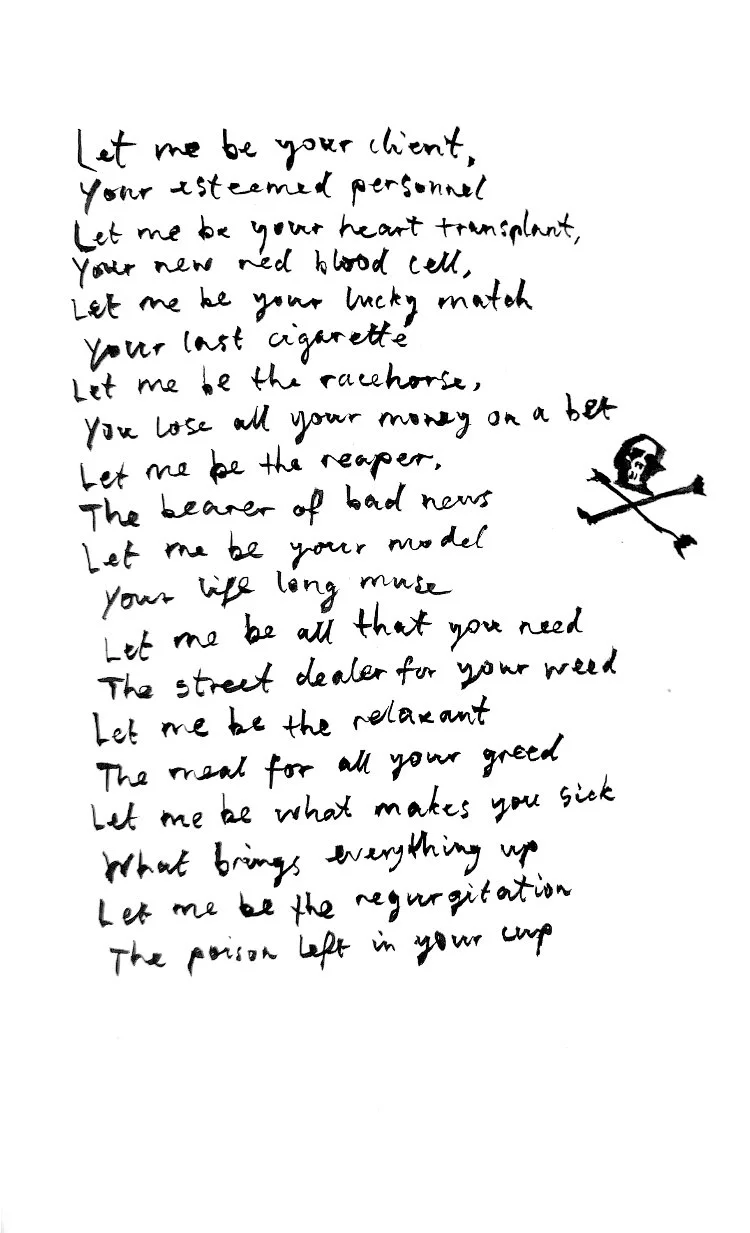 Let me be your client,
Your esteemed personnel
Let me be your heart transplant,
Your new red blood cell,
Let me be your lucky match
Your last cigarette
Let me be the racehorse,
You lose all your money on a bet
Let me be the reaper,
The bearer of bad news
Let me be your model
Your life long muse
Let me be all that you need
The street dealer for your weed
Let me be the relaxant
The meal for all your greed
Let me be what makes you sick
What brings everything up
Let me be the regurgitation
The poison left in your cup